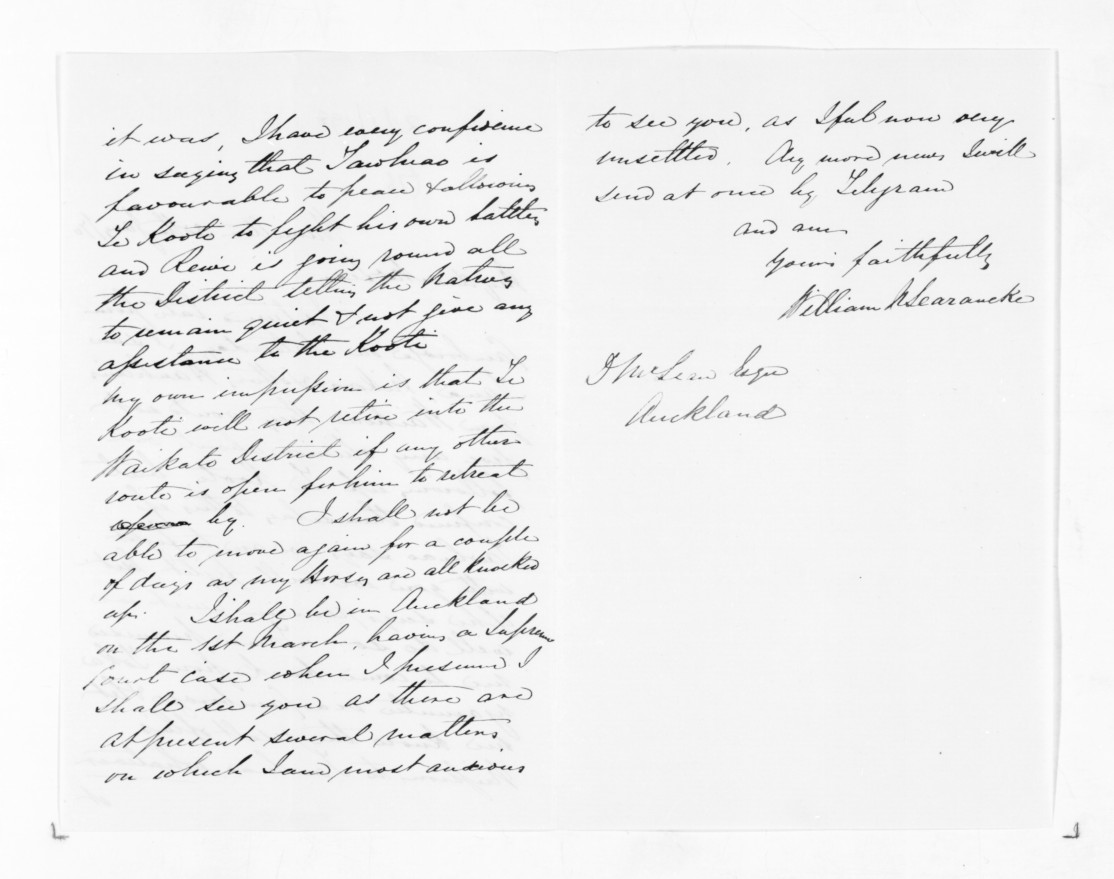 it was, I have every confidence
in saying that Tawhiao is
favourable to peace & allowing
Te Kooti to fight his own battles
and Rewi is going round all
the District telling the Natives
to remain quiet & not give any
assistance to the Kooti
my own impression is that Te
Kooti will not retire into the
Waikato District if any other
route is open for him to retreat
by. I shall not be
able to move again for a couple
of days as my Horses are all knocked
up. I shall be in Auckland
on the 1st March, having a Supreme
Court case when I presume I
shall see you as there are
at present several matters
on which I am most anxious
to see you, as I feel now very
unsettled. Any more news I will
send at once by Telegram
and am
yours faithfully
William N Searancke
D McLean Esqre
Auckland